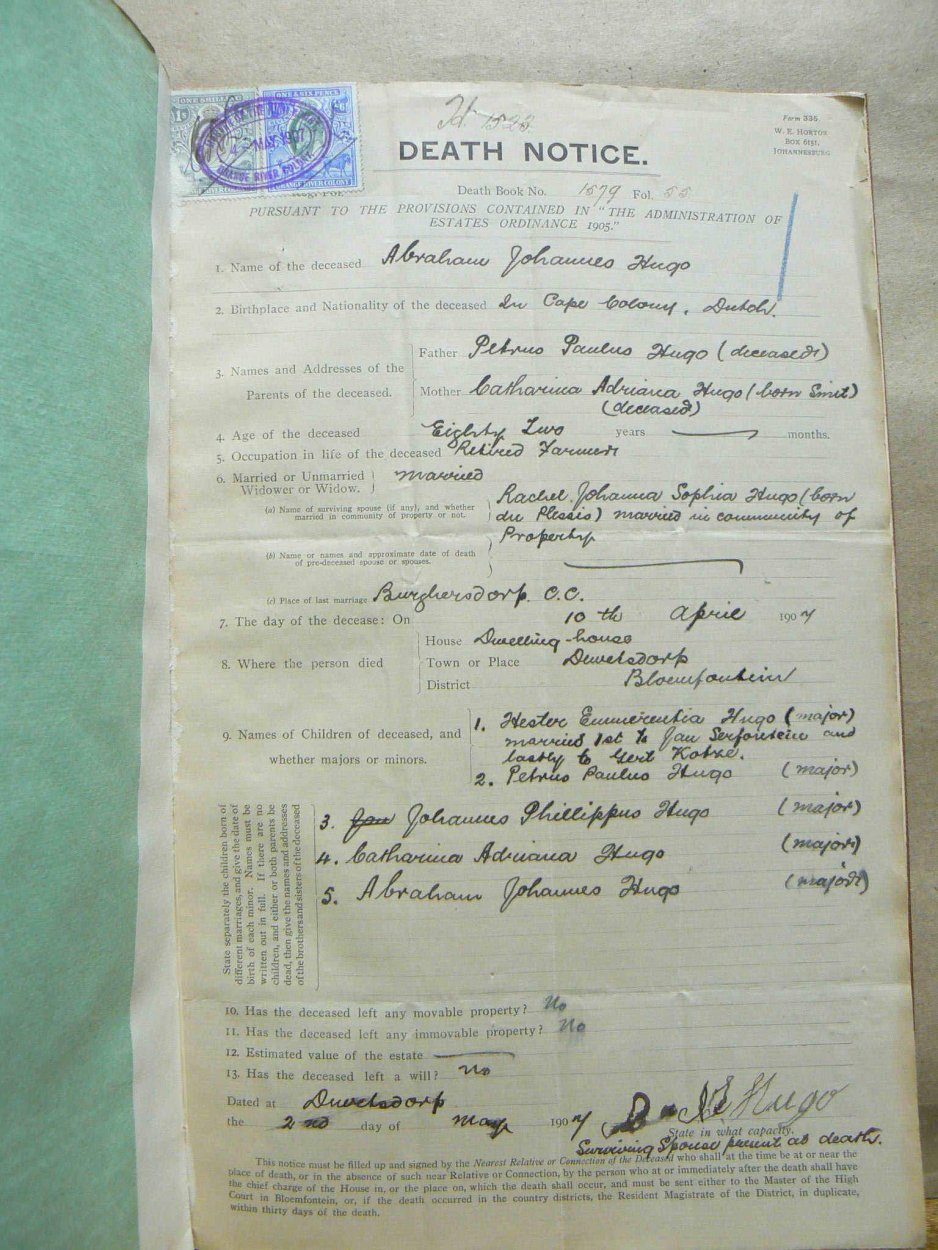 ONE SHILLING
ONE & SIX PENCE
1s
MAY 1907
ORANGE RIVER COLONY.
ORANGE RIVER COLONY
1523
Form 335.
W. E. HORTOR
BOX 6151.
JOHANNESBURG
DEATH NOTICE.
Death Book No. 1579 Fol. 55
PURSUANT TO THE PROVISIONS CONTAINED IN "THE ADMINISTRATION OF
ESTATES ORDINANCE 1905."
1. Name of the deceased Abraham Johannes Hugo
2. Birthplace and Nationality of the deceased In Cape Colony, Dutch.
3. Names and Addresses of the
Parents of the deceased.
Father Petrus Paulus Hugo (deceased)
Mother Catharina Adriana Hugo (born Smit)
(deceased)
4. Age of the deceased Eighty Two years — months.
5. Occupation in life of the deceased Retired Farmer
6. Married or Unmarried
Widower or Widow.
married
(a) Name of surviving spouse (if any), and whether
married in community of property or not.
Rachel Johanna Sophia Hugo (born
du Plessis) married in community of
Property
(b) Name or names and approximate date of death
of pre-deceased spouse or spouses.
—
(c) Place of last marriage Burghersdorp C.C.
7. The day of the decease: On 10th April 1907
8. Where the person died
House Dwelling-house
Town or Place Dewetsdorp
District Bloemfontein
9. Names of Children of deceased, and
whether majors or minors.
1. Hester Emmerentia Hugo (major)
married 1st to Jan Serfontein and
lastly to Gert Kotze.
2. Petrus Paulus Hugo (major)
State separately the children born of
different marriages, and give the date of
birth of each minor. Names must be
written out in full. If there are no
children, and either or both parents be
dead, then give the names and addresses
of the brothers and sisters of the deceased
3. Jan Johannes Phillippus Hugo (major)
4. Catharina Adriana Hugo (major)
5. Abraham Johannes Hugo (major)
10. Has the deceased left any movable property? No
11. Has the deceased left any immovable property? No
12. Estimated value of the estate —
13. Has the deceased left a will? No
Dated at Dewetsdorp
the 2nd day of May 1907
Hugo
State in what capacity.
Surviving Spouse present at death.
This notice must be filled up and signed by the Nearest Relative or Connection of the Deceased who shall at the time be at or near the
place of death, or in the absence of such near Relative or Connection, by the person who at or immediately after the death shall have
the chief charge of the House in, or the place on, which the death shall occur, and must be sent either to the Master of the High
Court in Bloemfontein, or, if the death occurred in the country districts, the Resident Magistrate of the District, in duplicate,
within thirty days of the death.